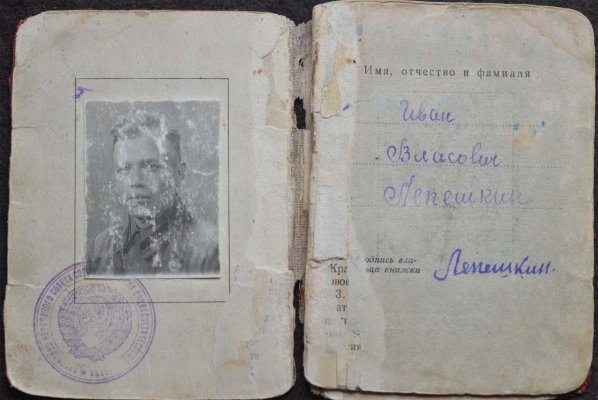 Имя, отчество и фамилия
Иван
Власович
Лепешкин
одпись вла-
ьца книжки
Лепешкин.
Кра
вос
3.
ат